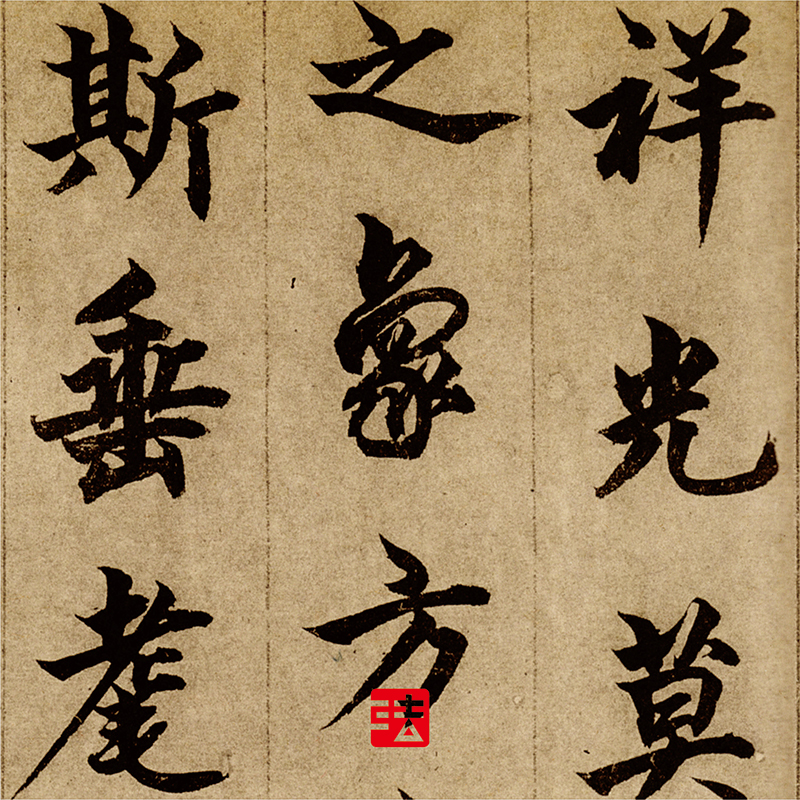 祥光莫
之象方
斯垂耄
法